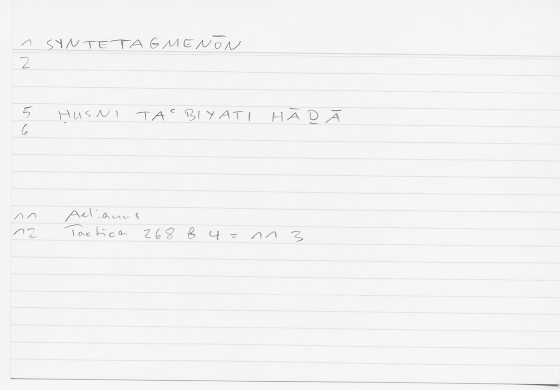 1 SYNTETAGMENŌN
2
5 ḤUSNI TAʿBIYATI HĀḎĀ
6
11 Aelianus
12 Tactica 268 B 4 = 11 3